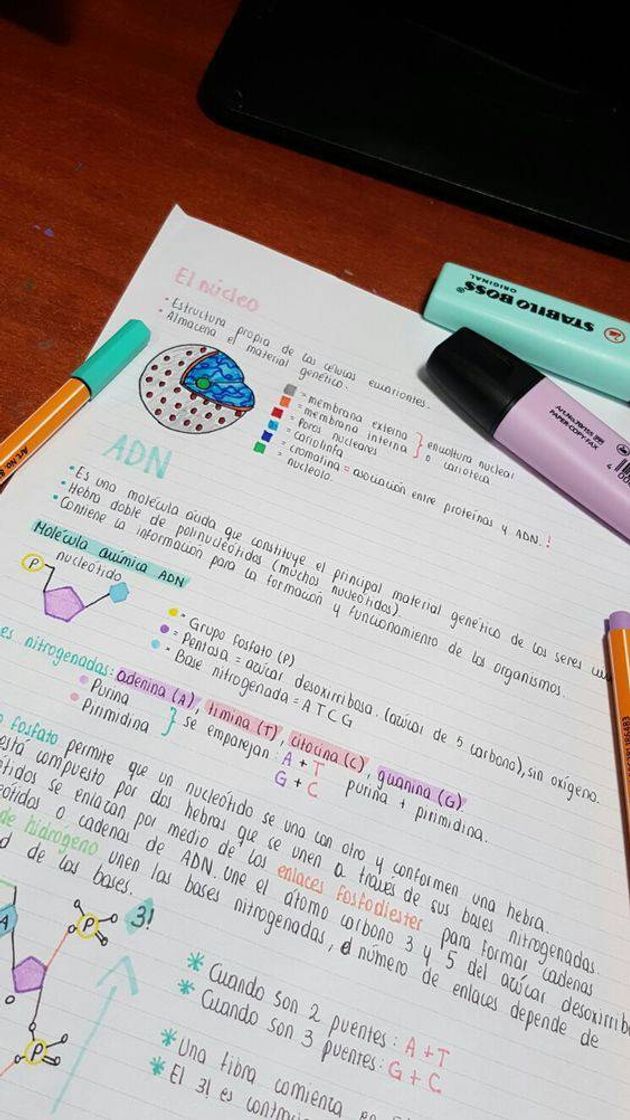 El núcleo
• Estructura propia de las células eucariontes.
• Almacena el material genético.
= membrana externa
= membrana interna
} envoltura nuclear o carioteca
= Poros nucleares
= cariolinfa
= cromatina = asociación entre proteínas y ADN. !
= nucleolo.
ADN
• Es una molécula ácida que constituye el principal material genético de los seres
• Hebra doble de polinucleótidos (muchos nucleótidos).
• Contiene la información para la formación y funcionamiento de los organismos.
Molécula química ADN
nucleótido
P
= Grupo fosfato (P)
= Pentosa = azúcar desoxirribosa. (azúcar de 5 carbono), sin oxígeno.
= Base nitrogenada = A T C G
es nitrogenadas: adenina (A), timina (T), citocina (C), guanina (G)
• Purina
• Pirimidina
} se emparejan: A + T
G + C
purina + pirimidina.
fosfato permite que un nucleótido se una con otro y conformen una hebra.
está compuesto por dos hebras que se unen a través de sus bases nitrogenadas.
se enlazan por medio de los enlaces fosfodiester para formar cadenas
o cadenas de ADN. Une el átomo carbono 3 y 5 del azúcar
de hidrógeno unen las bases nitrogenadas, el número de enlaces depende de
d de las bases.
A
P
3!
P
* Cuando son 2 puentes: A + T
* Cuando son 3 puentes: G + C
* Una fibra comienza en
* El 3! es
STABILO BOSS®
ORIGINAL
PAPER-COPY-FAX